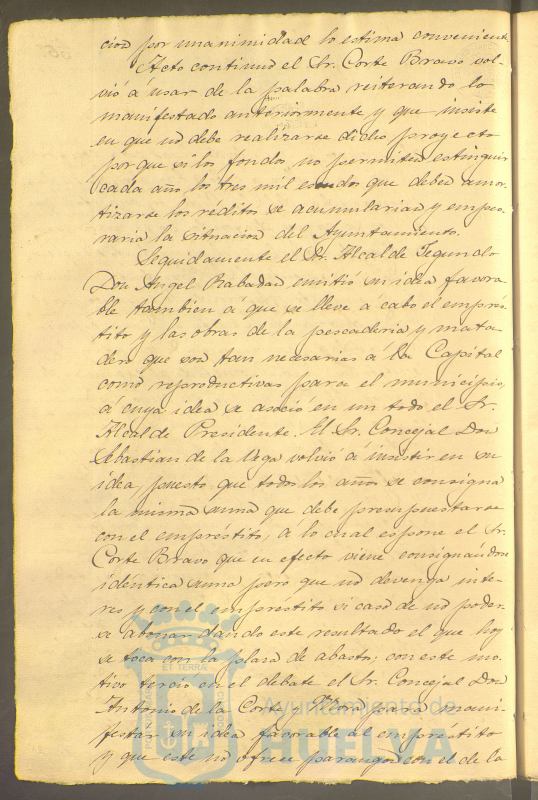 cion por unanimidad lo estima conveniente
Acto continuo el Sr. Corte Bravo vol-
vió á usar de la palabra reiterando lo
manifestado anteriormente y que insiste
en que no debe realizarse dicho proyecto
porque si los fondos no permiten estinguir
cada año los tres mil escudos que deben amor-
tizarse los réditos se acumularian y empeo-
raria la situacion del Ayuntamiento.
Seguidamente el Sr. Alcalde Segundo
Don Angel Rabadan emitió su idea favora-
ble tambien á que se lleve á cabo el emprés-
tito y las obras de la pescaderia y mata-
dero que son tan necesarias a la Capital
como reproductivas para el municipio,
á cuya idea se asoció en un todo el Sr.
Alcalde Presidente. El Sr. Concejal Don
Sebastian de la Vega volvió á insistir en su
idea, puesto que todos los años se consigna
la misma suma que debe presupuestarse
con el empréstito, á lo cual espone el Sr.
Corte Bravo que en efecto viene consignandose
idéntica suma pero que no devenga inte-
res y con el empréstito si caso de no poder-
se abonar dando este resultado el que hoy
se toca con la plaza de abasto; con este mo-
tivo terció en el debate el Sr. Concejal Don
Antonio de la Corte y Mora para mani-
festar su idea favorable al empréstito
y que este no ofrece parangon con el de la
ET TERRÆ
Ayuntamiento de
HUELVA